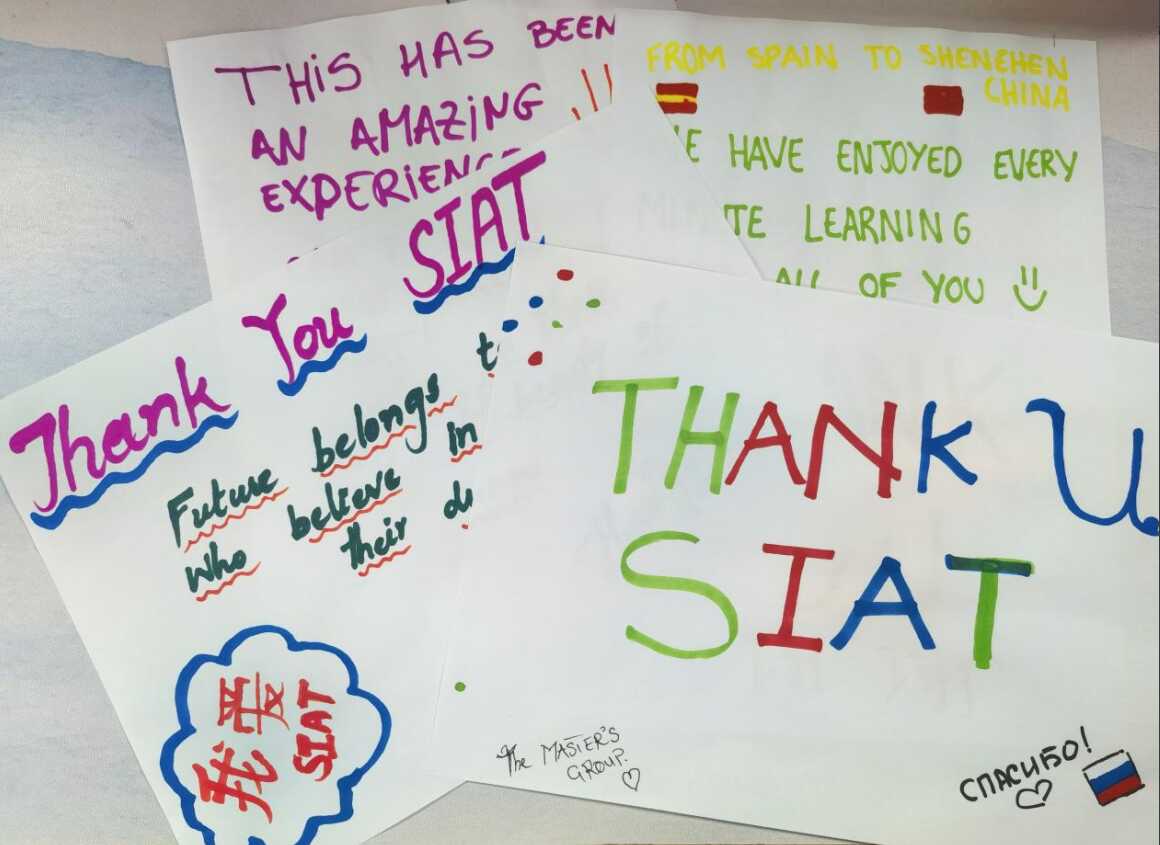 THiS HAS BEEN
AN AMAZiNG !!
EXPERIENC
FROM SPAIN TO SHENEHEN
CHINA
E HAVE ENJOYED EVERY
TE LEARNING
ALL OF YOU
Thank You SIAT
Future belongs t
who believe in
their d
我爱
SIAT
THANK U
SIAT
The MASTER'S
GROUP.
СПАСИБО!